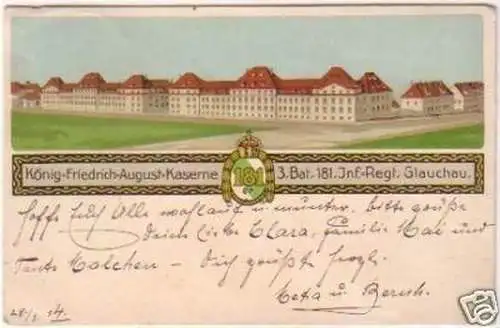 König-Friedrich-August-Kaserne 181 3. Bat. 181. Inf.-Regt. Glauchau.
hoffe Euch Alle wohlauf u. munter, bitte grüße
deine liebe Clara, Familie Mai und
Tante Malchen - Dich grüßt herzl.
Meta u.
28/ 14.
ebay